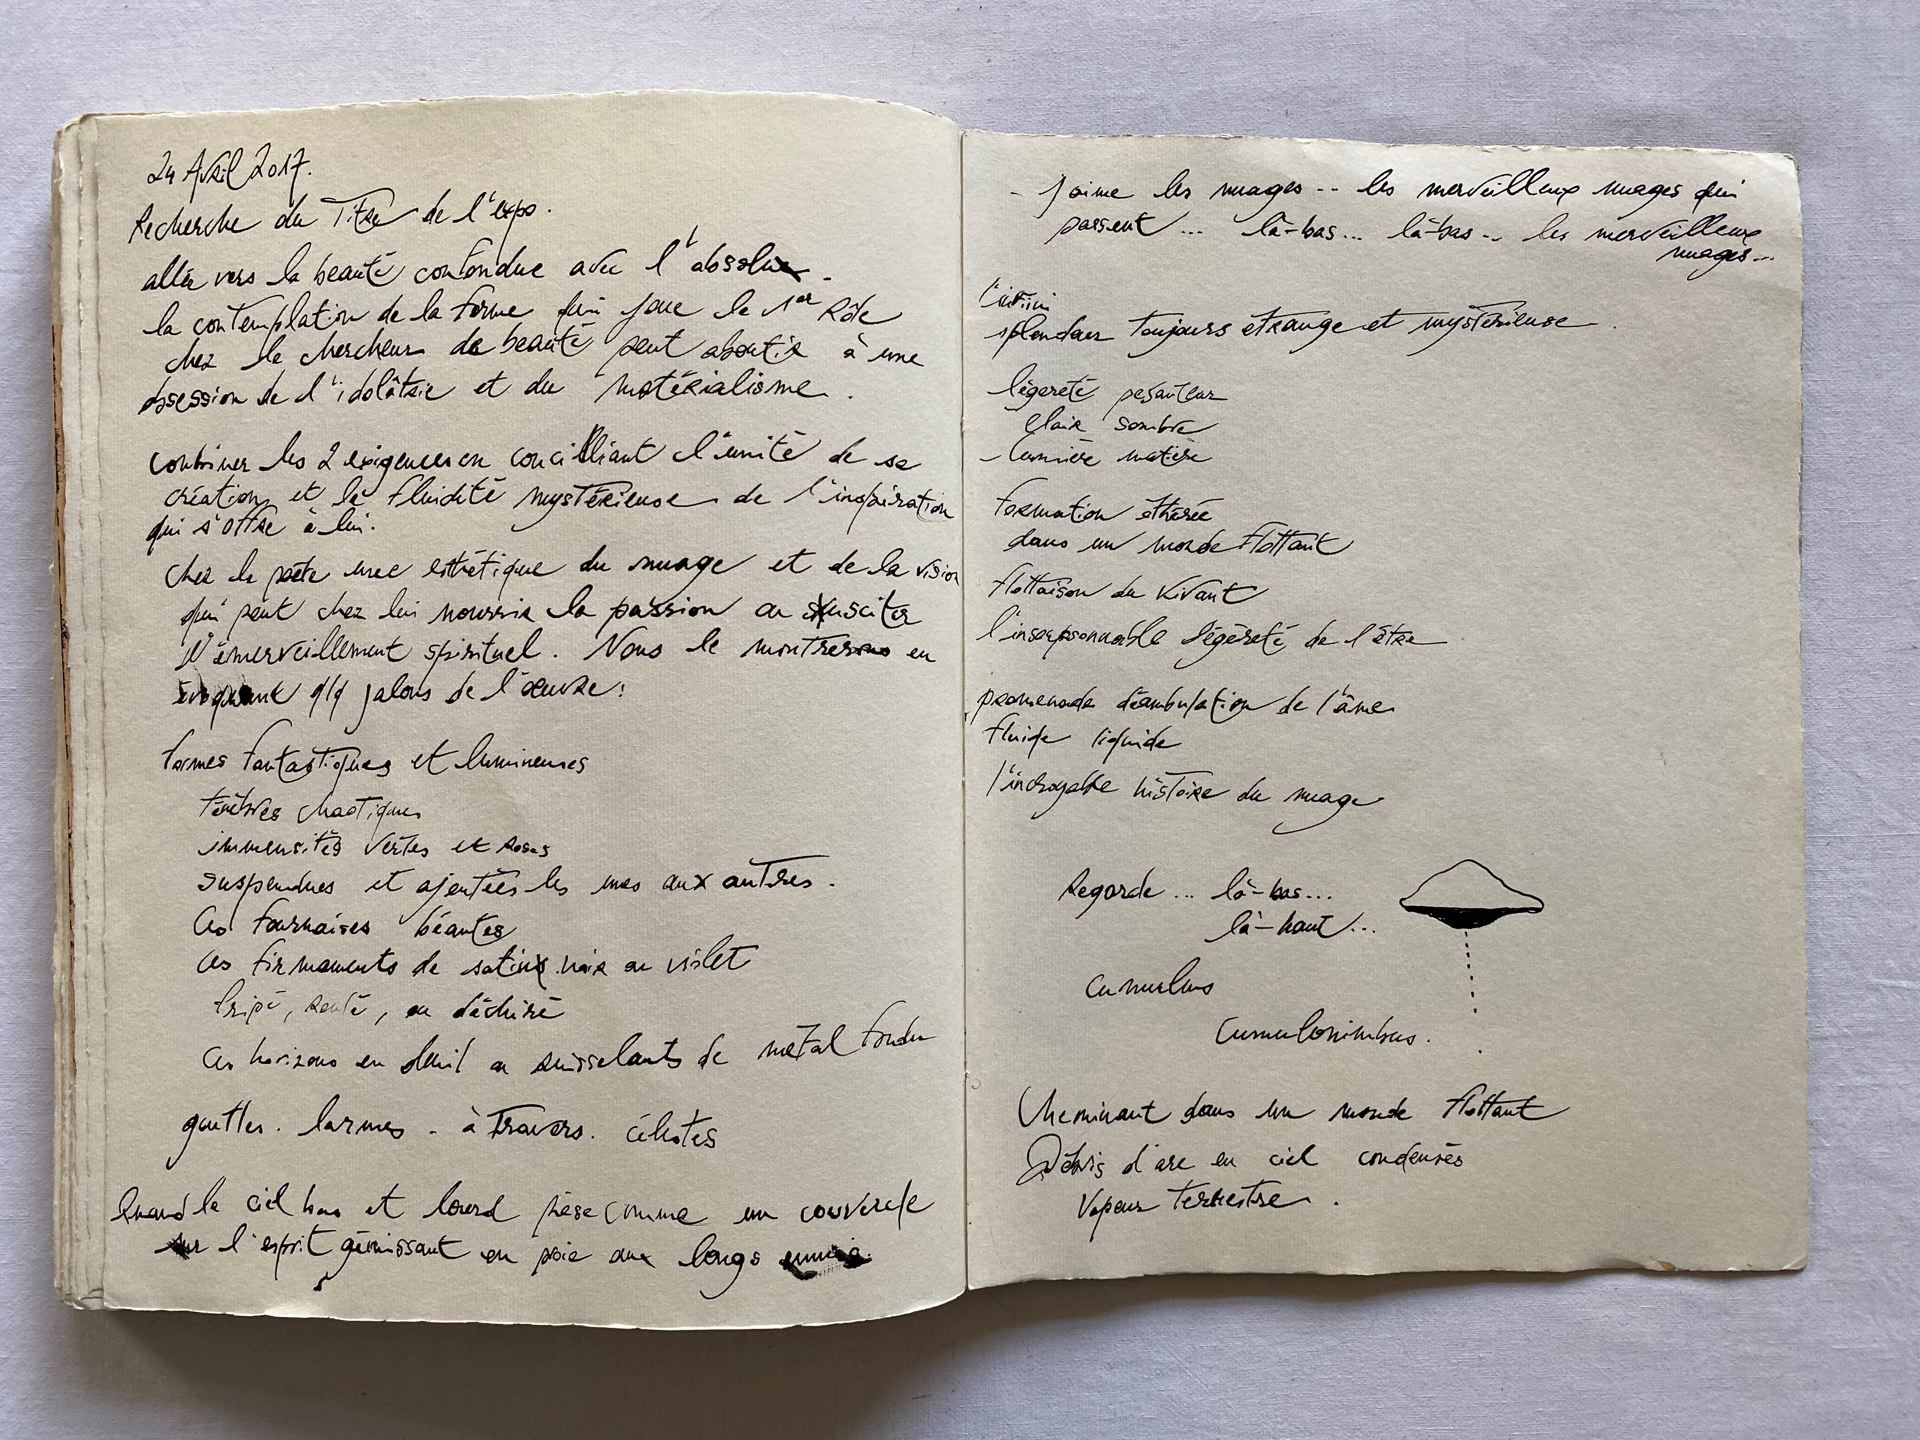 24 Avril 2017.
Recherche du Titre de l'expo.
aller vers la beauté confondue avec l'absolu.
la contemplation de la forme qui joue le 1er Rôle
chez le chercheur de beauté peut aboutir à une
obsession de l'idolâtrie et du matérialisme.
combiner les 2 exigences en conciliant l'unité de sa
création et la fluidité mystérieuse de l'inspiration
qui s'offre à lui.
chez le poète une esthétique du nuage et de la vision
qui peut chez lui nourrir la passion ou susciter
l'émerveillement spirituel. Nous le montrerons en
évoquant qlq jalons de l'œuvre:
formes fantastiques et lumineuses
ténèbres chaotiques
immensités vertes et roses
suspendues et ajoutées les unes aux autres.
ces fournaises béantes
ces firmaments de satin noir ou violet
fripé, roulé, ou déchiré
ces horizons en deuil ou ruisselants de métal fondu
gouttes. larmes - à travers. célestes
Quand le ciel bas et lourd pèse comme un couvercle
sur l'esprit gémissant en proie aux longs ennuis.
- J'aime les nuages... les merveilleux nuages qui
passent... là-bas... là-bas... les merveilleux
nuages...
l'infini
splendeur toujours étrange et mystérieuse.
légereté pesanteur
clair sombre
- lumière matière
formation éthérée
dans un monde flottant
flottaison du vivant
légèreté de l'être
promenade déambulation de l'âme
fluide liquide
l'incroyable histoire du nuage
Regarde... là-bas...
là-haut...
cumulus
cumulonimbus.
Cheminant dans un monde flottant
Débris d'arc en ciel condensés
Vapeur terrestre.